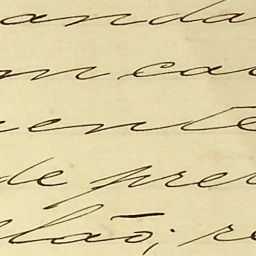 anda
m cas
ende
de pre
lão; re